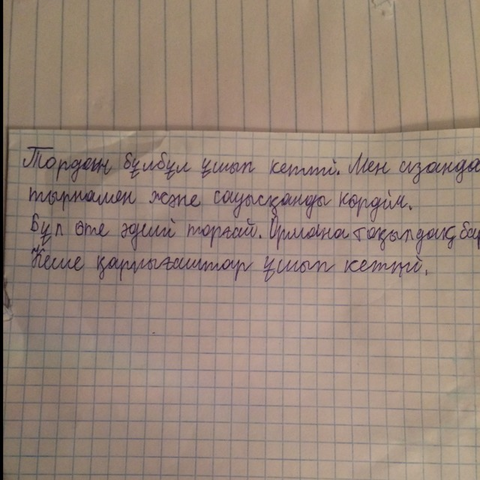 Тордан бұлбұл ұшып кетті. Мен сызанда
тырнамен және сауысқанды көрдім.
Бұл өте әдемі торғай. Ормана тоқылдақ бар
Кеше қарлығаштар ұшып кетті.